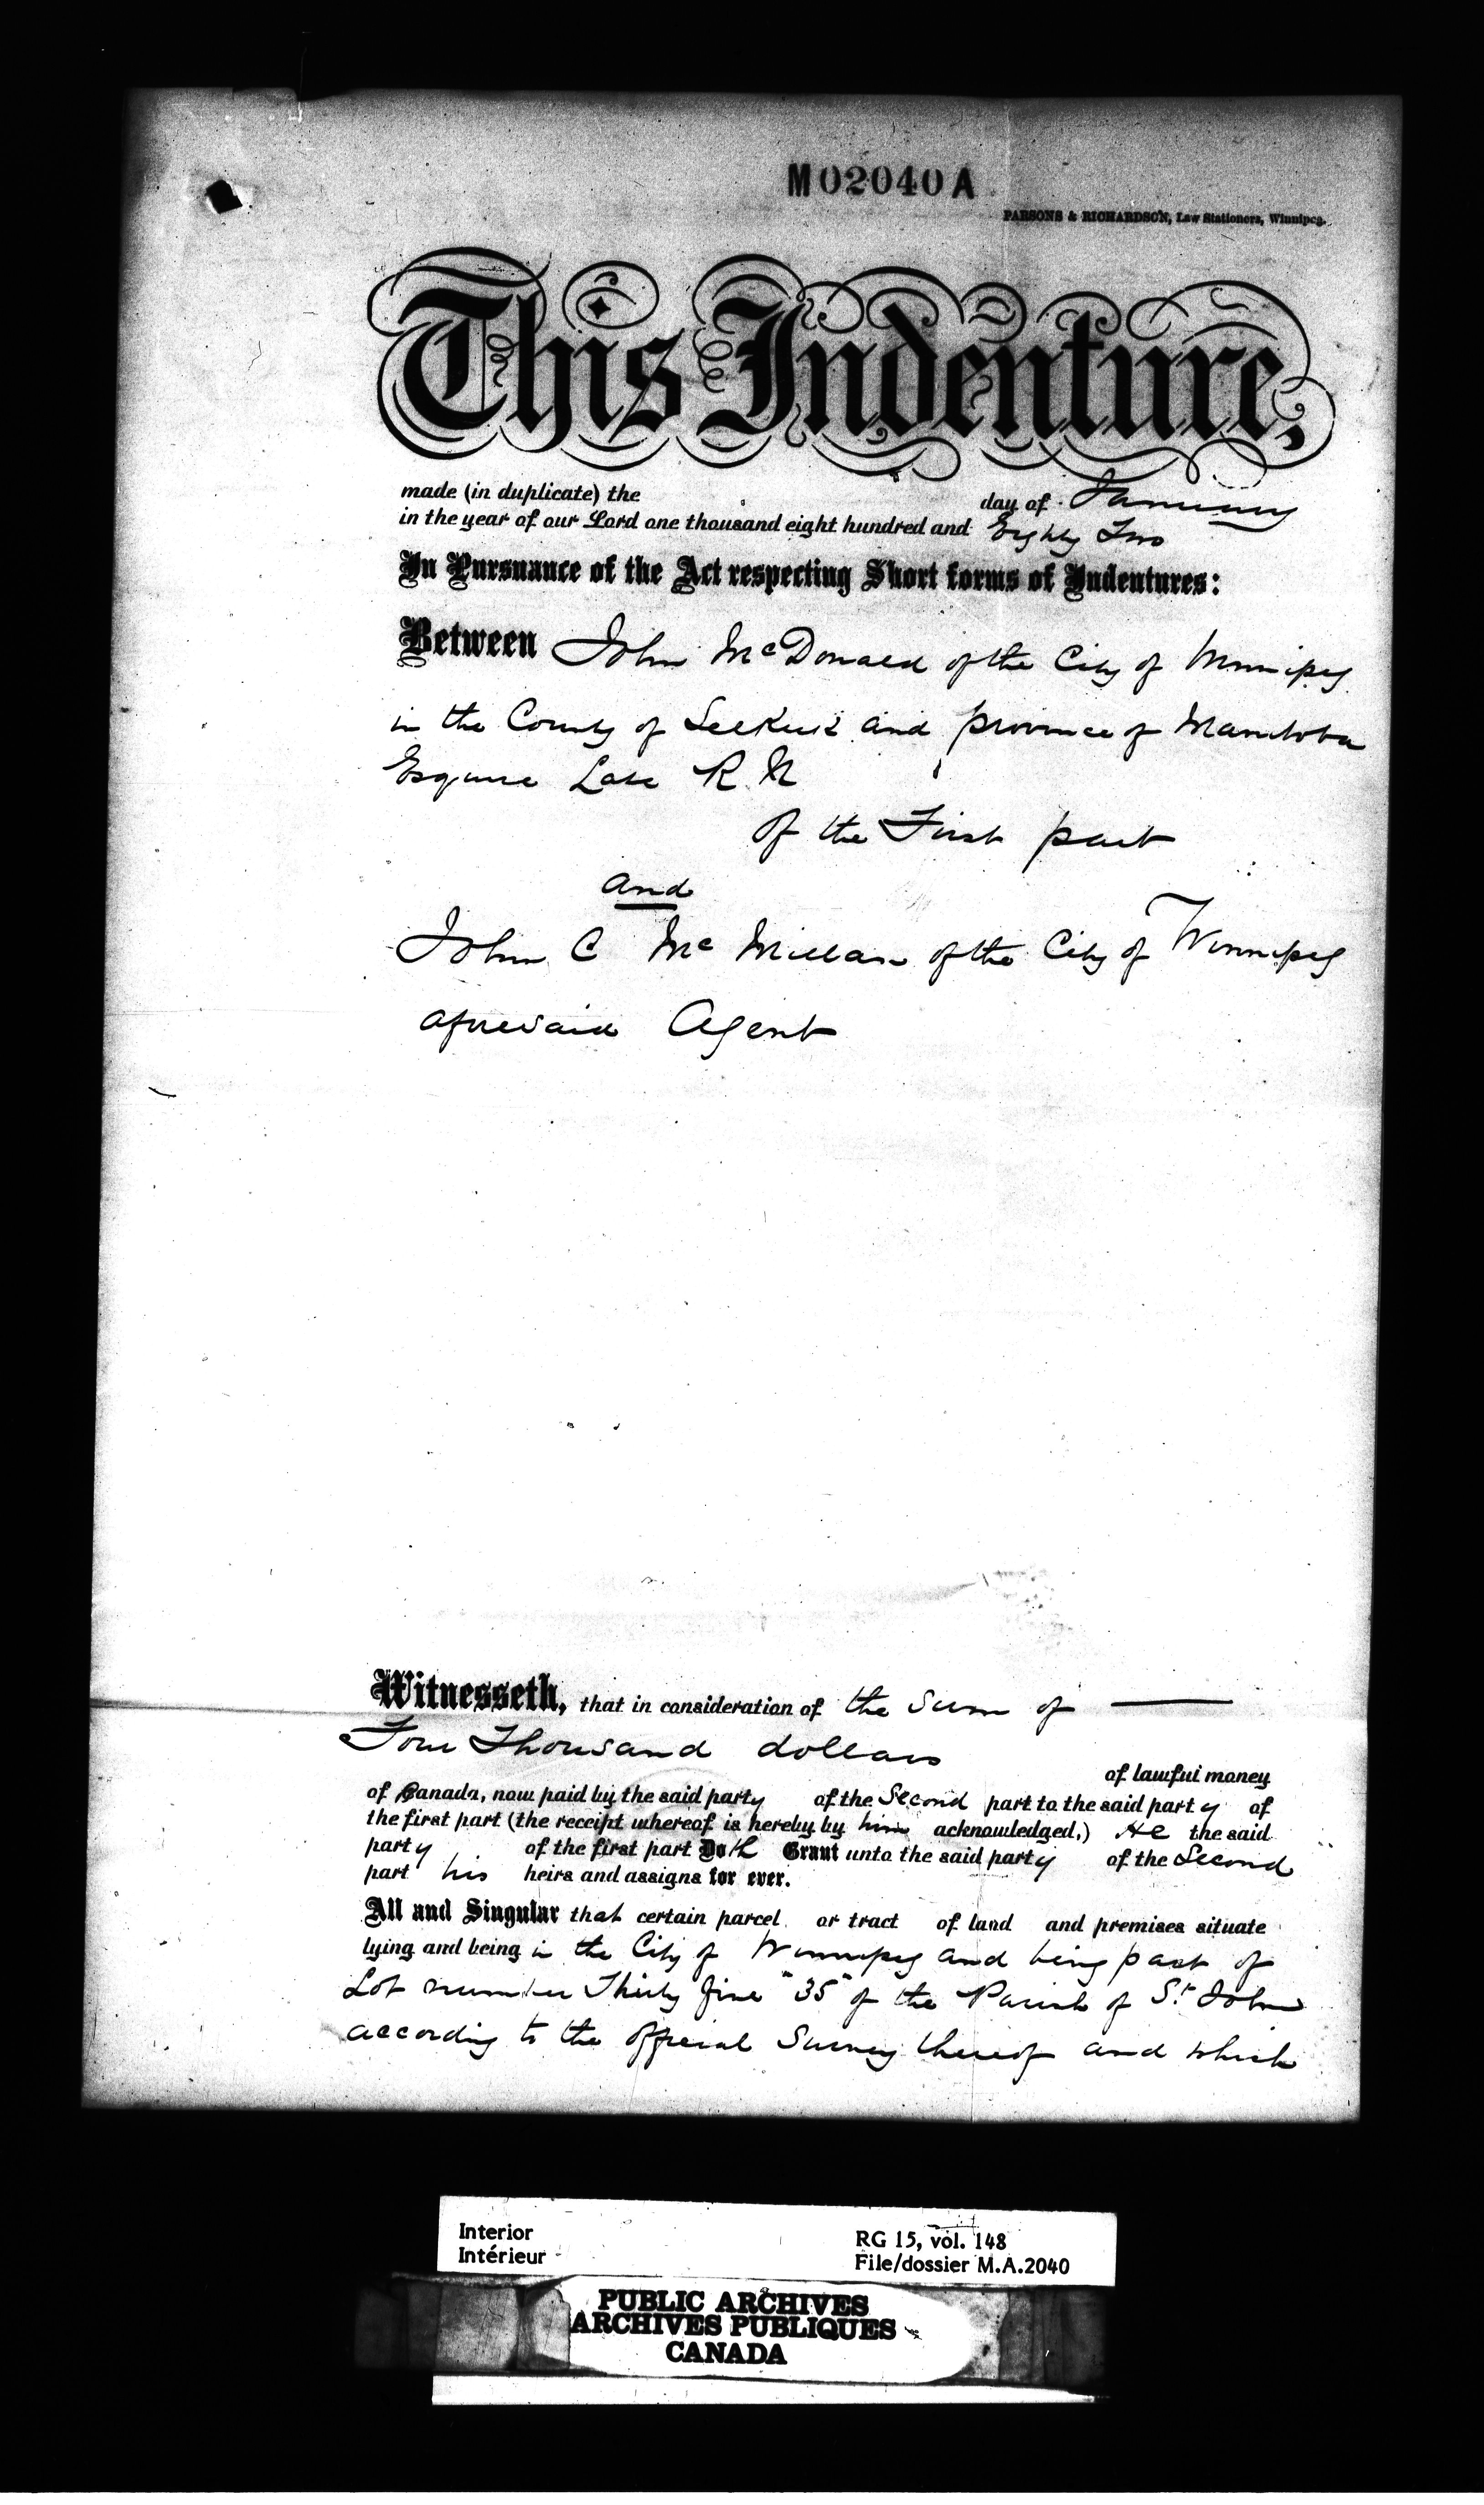 M02040A
PARSONS & RICHARDSON, Law Stationers, Winnipeg.
This Indenture,
made (in duplicate) the day of January
in the year of our Lord one thousand eight hundred and Eighty Two
In Pursuance of the Act respecting Short forms of Indentures:
Between John McDonald of the City of Winnipeg
in the County of Selkirk and province of Manitoba
Esquire Late R. N
of the First part
and
John C Mc Millan of the City of Winnipeg
aforesaid Agent
Witnesseth, that in consideration of the sum of
Four Thousand dollars
of lawful money
of Canada, now paid by the said party of the Second part to the said party of
the first part (the receipt whereof is hereby by him acknowledged,) He the said
party of the first part Doth Grant unto the said party of the Second
part his heirs and assigns for ever.
All and Singular that certain parcel or tract of land and premises situate
lying and being in the City of Winnipeg and being part of
Lot number Thirty five "35" of the Parish of St. John
according to the official Survey thereof and which
Interior
Intérieur
RG 15, vol. 148
File/dossier M.A.2040
PUBLIC ARCHIVES
ARCHIVES PUBLIQUES
CANADA